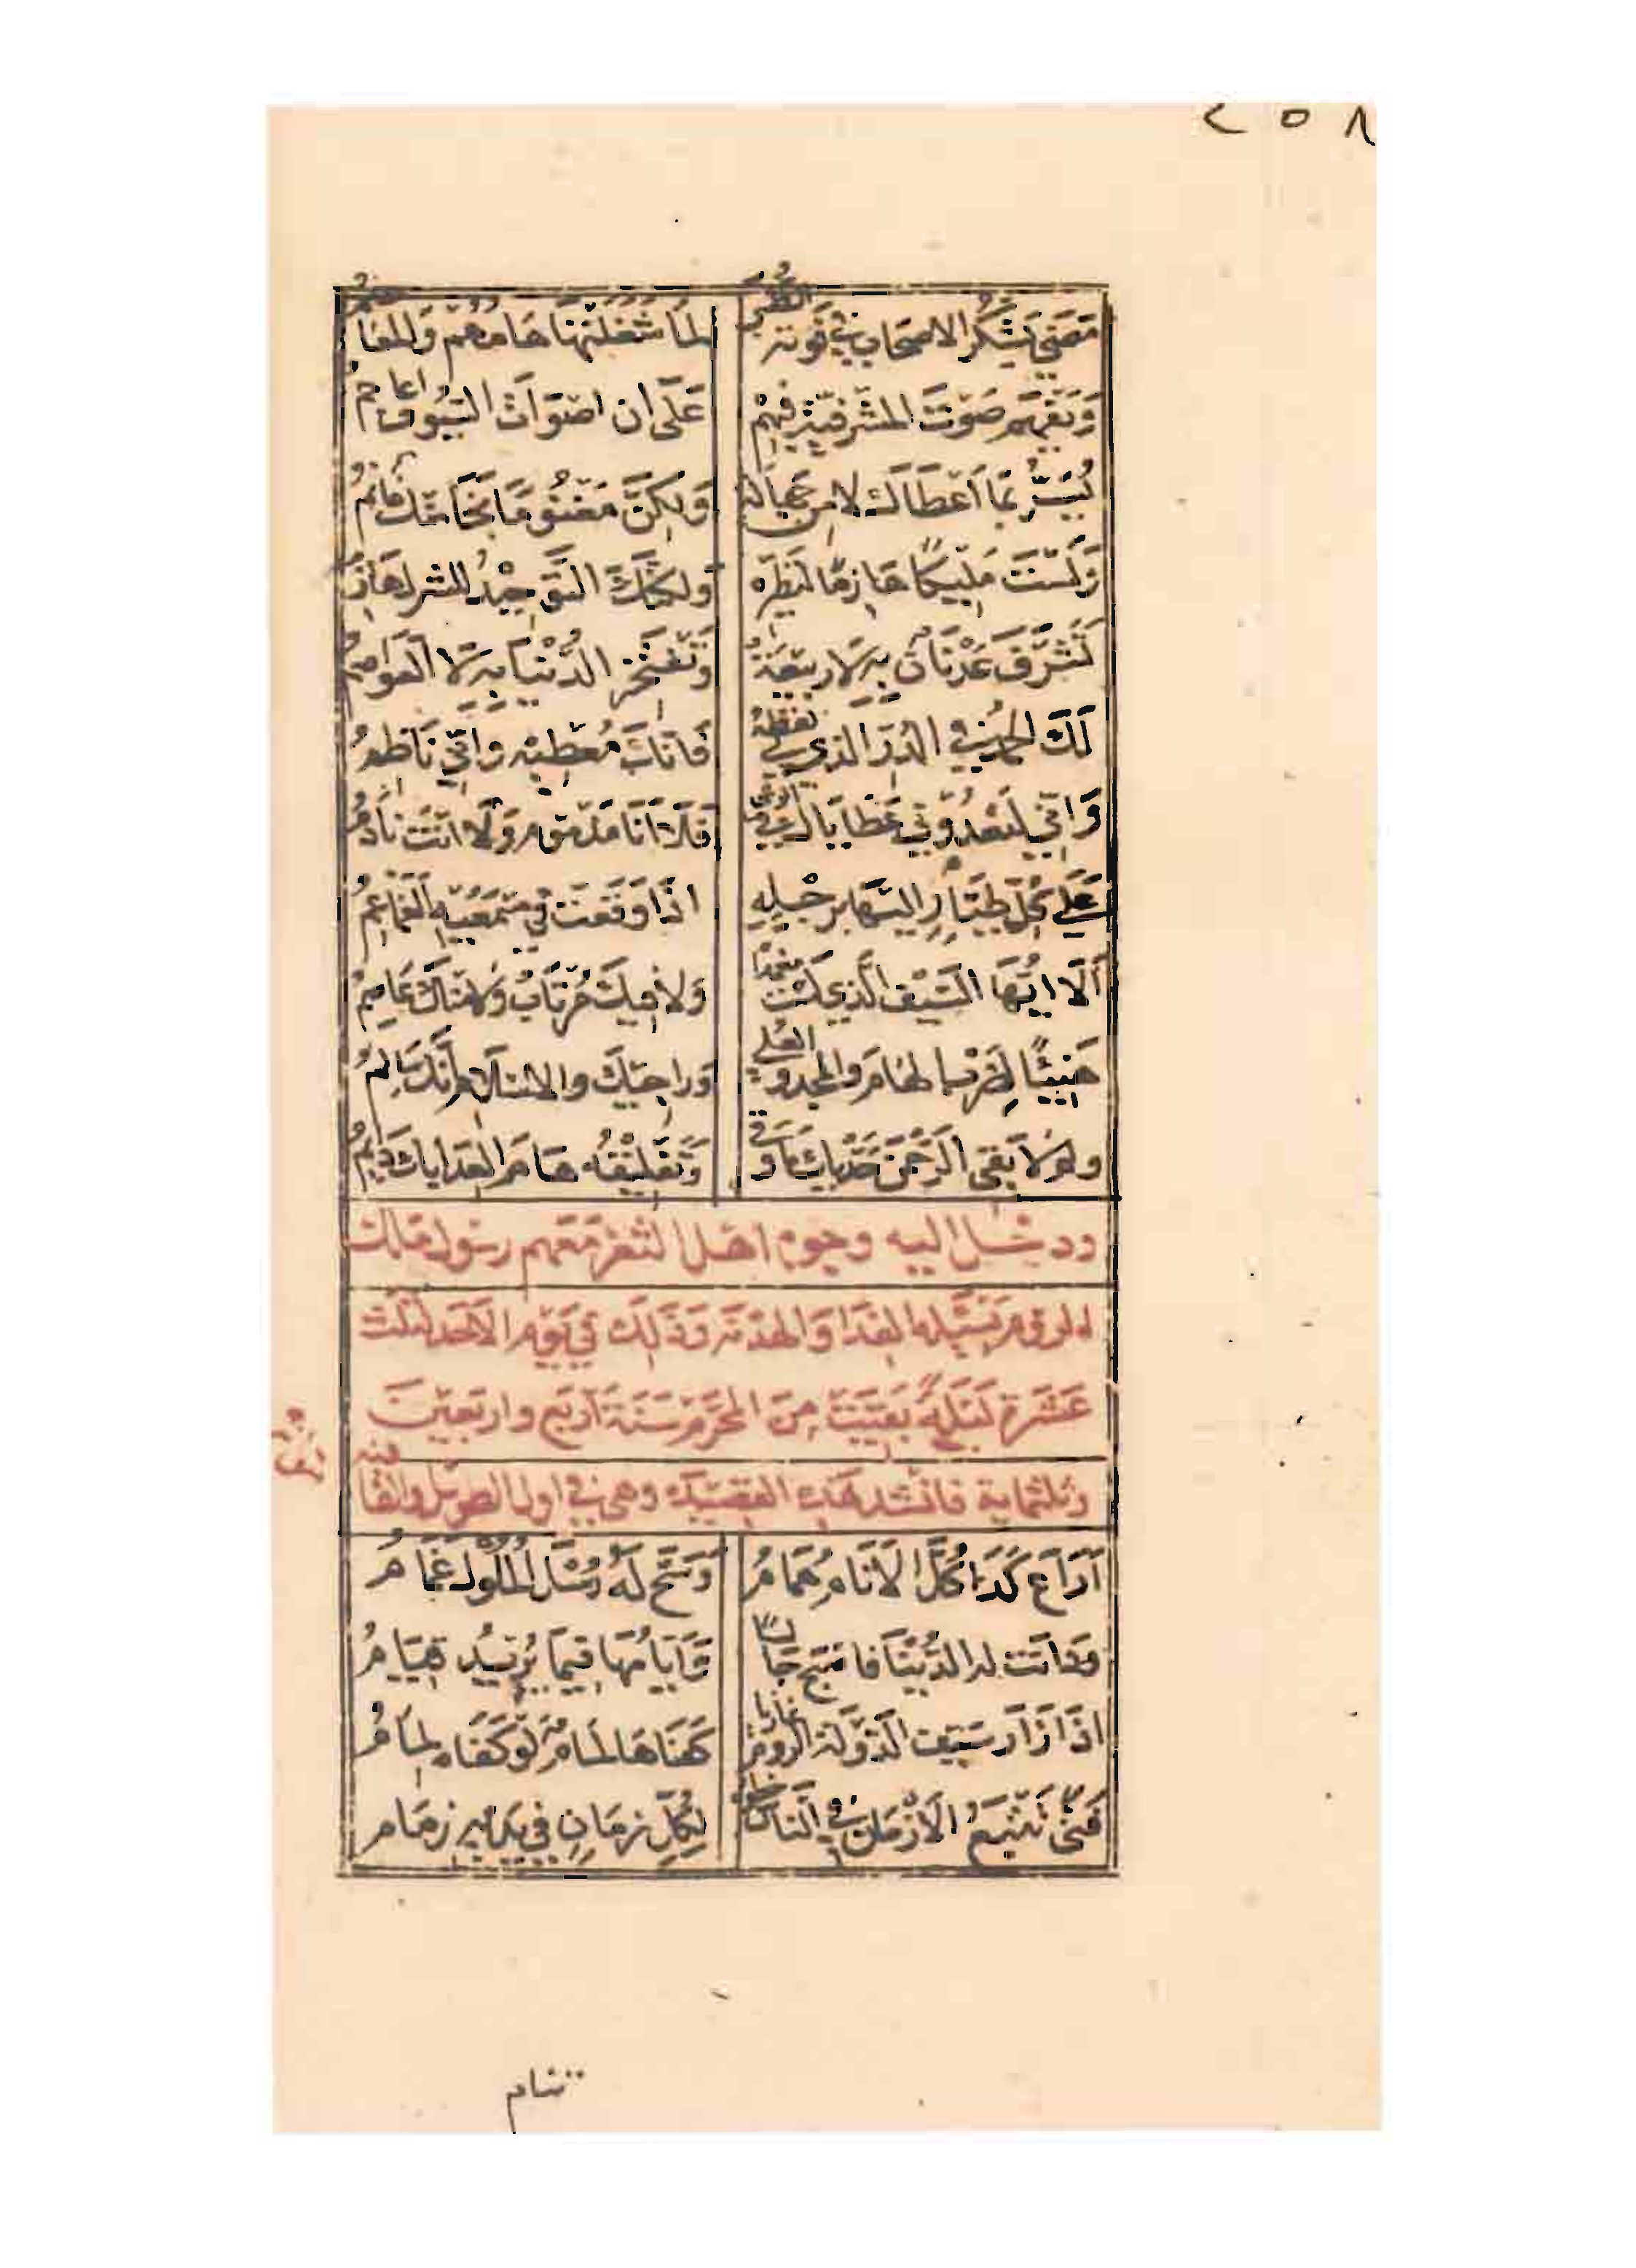 ٢٥٨
مَضَى يَشكُرُ الاصحابَ في فَوته الظُّبَى لمَا شَغَلتْهَا هَامُهُمْ وَالمعَاصِمُ
وَيَفهَم صَوْتَ المشرَفيّةِ فيهِمْ عَلَى ان اصْوَاتَ السّيُوف اعاجمُ
يُسَرُّ بمَا اَعْطَاكَ لا من جهَالَة وَلكِنَّ مَغنُومًا نَجَا مِنكَ غانمُ
وَلَسْتَ مَليكًا هَازمًا لنَظيره ولكنّكَ التَّوحِيْدُ للشرك هَازمُ
تَشَرَّفَ عَدْنَانٌ بِهِ لَا رَبِيعَةٌ وَتَفتَخرُ الدُّنْيَا بِه لَا العَواصمُ
لَكَ الحمدُ في الدُّرّ الذي لي لفظهُ فَانّكَ مُعْطيْه وانّي نَاظمُ
وَانّي لتَعْدُو بي عَطَايَاكَ في الوغَى فَلَا اَنَا مَذمُومٌ وَلَا انتَ نَادِمُ
عَلَى كُلّ طَيَّارٍ اليهَا برجْلِهِ اذَا وَقَعَتْ في مَسْمَعَيْهِ الغَمَاغِمُ
اَلَا ايُّهَا السّيْفُ الَّذي لست مغمدًا وَلا فيكَ مُرْتَابٌ وَلا منكَ عَاصِمُ
هَنِيئًا لِضَرْب الهَامِ وَالمجدِ والعُلى وَراجِيْكَ والاسْلَام اَنَّكَ سَالِمُ
ولم لَا يَقي الرَّحْمنُ حَدَّيكَ مَا وقَى وَتَفليْقُه هَامَ العِدَا بكَ دَايمُ
ودخل اليه وجوه اهل الثغر مَعَهم رسُول ملك
الروم يَسئَله الفدَا وَالهدْنَة وَذَلِكَ في يَوم الاَحَد لثلث
عَشرَة لَيلَةً بَقيَتْ مِنَ المحَرّم سَنَة اَربَع واربَعينَ
وثلثماية فانشد هَذه القصيدَة وهي في اول الطويل والقافيه
اَرَاعَ كَذَا كُلَّ الاَنَامِ هُمَامُ وَسَحَّ لَهُ رُسْلَ المُلُوكِ غَمَامُ
وَدَانَتْ له الدُّنْيَا فاصْبَحَ جَالسًا وَاَيَّامُهَا فيمَا يُرِيْدُ قِيَامُ
اذَا زَارَ سَيفُ الدَّوْلَة الرُّومَ غازيا كَفَاهَا لِمَامٌ لَوْ كَفَاه لِمَامُ
فَتًى تَتْبَعُ الاَزْمَانُ في النَّاسِ خطوهُ لِكُلِّ زمَانِ في يَدَيْهِ زمَام
تنام